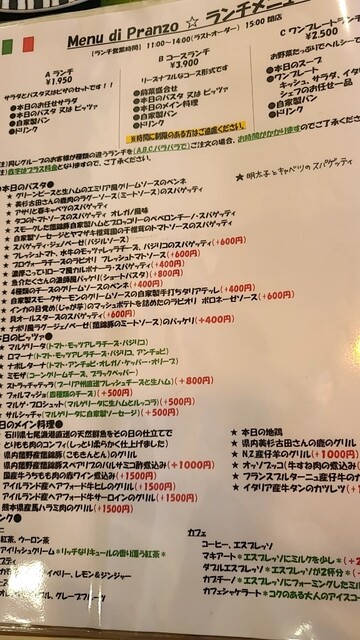 Menu di Pranzo ☆ ランチメニュー
(ランチ営業時間) 11:00~14:00(ラストオーダー) 15:00 閉店
A ランチ
¥1,950
サラダとパスタ又はピザのセットです！！
●本日のお任せサラダ
●本日のパスタ 又は ピッツァ
●自家製パン
●ドリンク
B コースランチ
¥3,900
リーズナブルなコース形式です
●前菜盛合せ
●本日のパスタ 又は ピッツァ
●本日のメイン料理
●自家製パン
●ドリンク
※時間に制限のある方はご遠慮ください。
C ワンプレートランチ
¥2,500
お野菜たっぷりでヘルシー
●本日のスープ
●ワンプレート
キッシュ、サラダ、イタ
シェフのお任せ一品
●自家製パン
●ドリンク
注)同じグループのお客様が種類の違うランチを(A,B,Cバラバラで)ご注文の場合、お時間がかかりますのでご了承ください。
注)赤字はプラス料金となりますので、ご了承ください。
●本日のパスタ●
★ グリーンピースと生ハムのエミリア風クリームソースのペンネ
★ 美杉古田さんの鹿肉のラグーソース(ミートソース)のスパゲッティ
★ アサリと春キャベツのスパゲッティ
★ タコのトマトソースのスパゲッティ オレガノ風味
★ スモークした龍錦豚自家製ハムとブロッコリーのペペロンチーノ・スパゲッティ
★ 自家製ソーセージとヤマザキ椎茸園の椎茸のトマトソースのスパゲッティ
★ スパゲッティ・ジェノベーゼ(バジルソース)
★ フレッシュトマト、水牛のモッツァレラチーズ、バジリコのスパゲッティ(+600円)
★ ゴロヴォーラチーズのラビオリ フレッシュトマトソース(+600円)
★ 濃厚こってりローマ風カルボナーラ・スパゲッティ(+400円)
★ 魚介たくさんの漁師風パッケリ(ショートパスタ)(+800円)
★ 4種類のチーズのクリームソースのペンネ(+400円)
★ 自家製スモークサーモンのクリームソースの自家製手打ちタリアテッレ(+400円)
★ インカの目覚め(じゃが芋)のマッシュポテトを詰めたラビオリ ボロネーゼソース(+600円)
★ 貝オールスターズのスパゲッティ(+600円)
★ ナポリ風ラグージェノベーゼ(龍錦豚のミートソース)のパッケリ(+400円)
★ 明太子とキャベツのスパゲッティ
●本日のピッツァ●
★ マルゲリータ(トマト・モッツアレラチーズ・バジリコ)
★ ロマーナ(トマト・モッツアレラチーズ・バジリコ、アンチョビ)
★ ナポレターナ(トマト・アンチョビ・オレガノ・ケッパー・オリーブ)
★ ミモザ(コーンクリームチーズ、ブラックペパー)
★ ストラッチャテッラ(プーリア州直送フレッシュチーズと生ハム)(+800円)
★ フォルマッジョ(四種類のチーズ)(+500円)
★ マルゲ・プロシュット(マルゲリータに生ハムとルッコラ)(+500円)
★ サルシッチャ(マルゲリータに自家製ソーセージ)(+500円)
●本日のメイン料理●
★ 石川県七尾漁港直送の天然鮮魚をその日の仕立てで
★ とりもも肉のコンフィ(しっとり柔らかく仕上げました)
★ 県内産野産龍錦豚(こもきんとん)のグリル
★ 県内産野産龍錦豚スペアリブのバルサミコ酢煮込み(+1000円)
★ 国産牛うちもも肉の赤ワイン煮込み(+1500円)
★ アイルランド産ヘアフォード牛ヒレのグリル(+1500円)
★ アイルランド産ヘアフォード牛サーロインのグリル(+1500円)
★ 熊本県産馬ハラミ肉のグリル(+1500円)
★ 本日の地鶏
★ 県内美杉古田さんの鹿のグリル
★ NZ産仔羊のグリル(+1000円)
★ オッソブッコ(牛すね肉の煮込み)
★ フランスブルターニュ産仔牛の
★ イタリア産牛タンのカツレツ
ンク●
紅茶、ウーロン茶
アイリッシュクリーム *リッチなリキュールの香り漂う紅茶*
ベリー、レモン＆ジンジャー
オレンジ、アップル、グレープフルーツ
カフェ
コーヒー、エスプレッソ
マキアート *エスプレッソにミルクを少し*
ダブルエスプレッソ *エスプレッソが2杯分*
カプチーノ *エスプレッソにフォーミングしたミルク
カフェシャケラート *コクのある大人のアイスコー